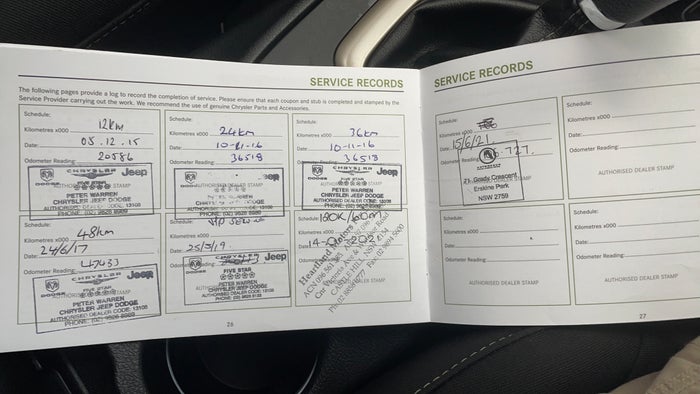 SERVICE RECORDS
The following pages provide a log to record the completion of service. Please ensure that each coupon and stub is completed and stamped by the
Service Provider carrying out the work. We recommend the use of genuine Chrysler Parts and Accessories.
Schedule:
12km
Kilometres x000
Date: 05.12.15
Odometer Reading: 20586
CHRYSLER Jeep
DODGE
AUTHORISED DEALER STAMP
PETER WARREN
CHRYSLER JEEP DODGE
AUTHORISED DEALER CODE: 13105
PHONE: (02) 9828 8989
Schedule:
Kilometres x000 24km
Date: 10-11-16
Odometer Reading: 36518
Jeep
AUTHORISED DEALER STAMP
PETER WARREN
CHRYSLER JEEP DODGE
PHONE: (02) 9828 8989
Schedule:
Kilometres x000 36km
Date: 10-11-16
Odometer Reading: 36513
CHRYSLER Jeep
DODGE
FIVE STAR
PETER WARREN
CHRYSLER JEEP DODGE
AUTHORISED DEALER CODE: 13105
Schedule:
48km
Kilometres x000
Date: 24/6/17
Odometer Reading: 47433
CHRYSLER Jeep
DODGE
FIVE STAR
PETER WARREN
CHRYSLER JEEP DODGE
AUTHORISED DEALER CODE: 13105
PHONE: (02) 9828 8989
Schedule:
Kilometres x000
Date: 25/5/19
Odometer Reading:
CHRYSLER Jeep
DODGE
FIVE STAR
PETER WARREN
CHRYSLER JEEP DODGE
AUTHORISED DEALER CODE: 13105
Schedule:
Kilometres x000
Date: 14- 2021
Odometer Reading:
Heartland Motors
26
SERVICE RECORDS
Schedule:
Kilometres x000
Date: 15/6/21.
Odometer Reading:
No. 727.
Erskine Park
NSW 2759
Schedule:
Kilometres x000
Date:
Odometer Reading:
AUTHORISED DEALER STAMP
Schedule:
Kilometres x000
Date:
Odometer Reading:
AUTHORISED DEALER STAMP
Schedule:
Kilometres x000
Date:
Odometer Reading:
AUTHORISED DEALER STAMP
27